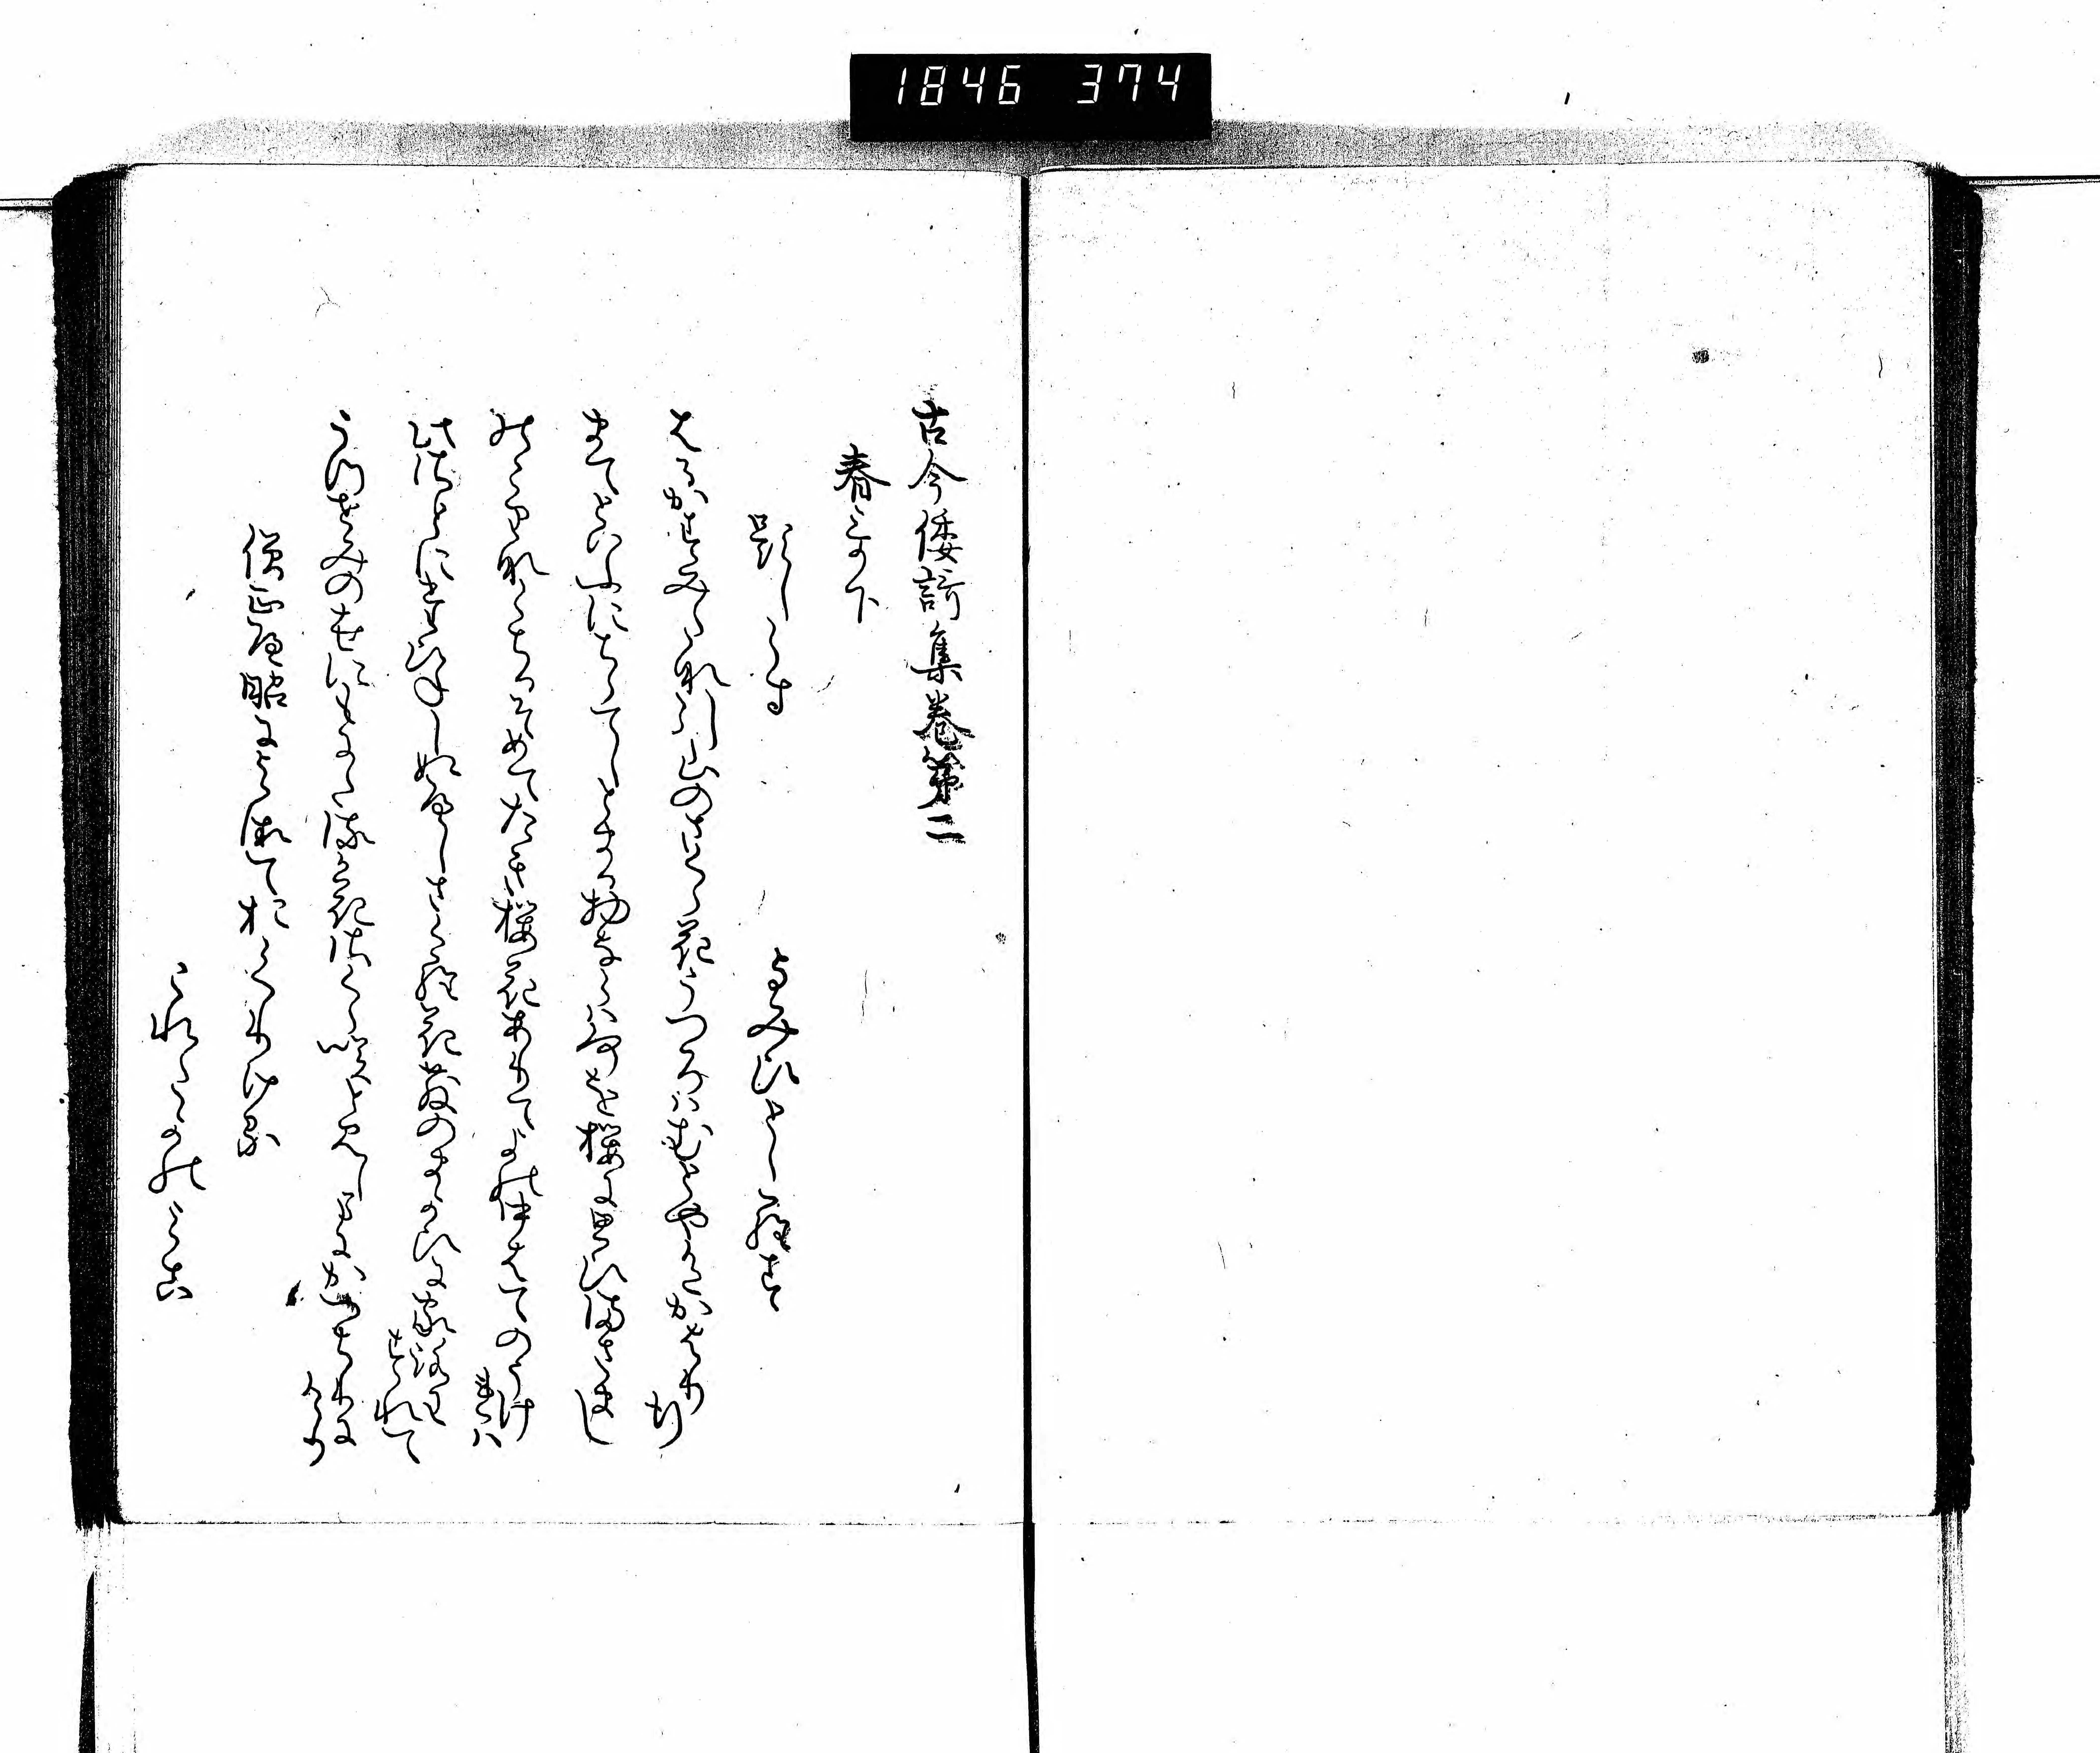 1846 374
古今倭謌集巻第二
春哥下
題しらす
よみひとしらす
はるかすみたなひく山のさくら花うつろはむとや色かはり
行
まてといふにちらてしとまる物ならは何を桜に思ひまさまし
のこりなくちるそめてたき桜花ありて世中はてのうけ
れは
此さとにたひねしぬへしさくら花ちりのまかひに家路わ
すれて
うつせみの世にもにたるか花さくら咲と見しまにかつちりに
けり
僧正遍昭によみておくりける
これたかのみこ